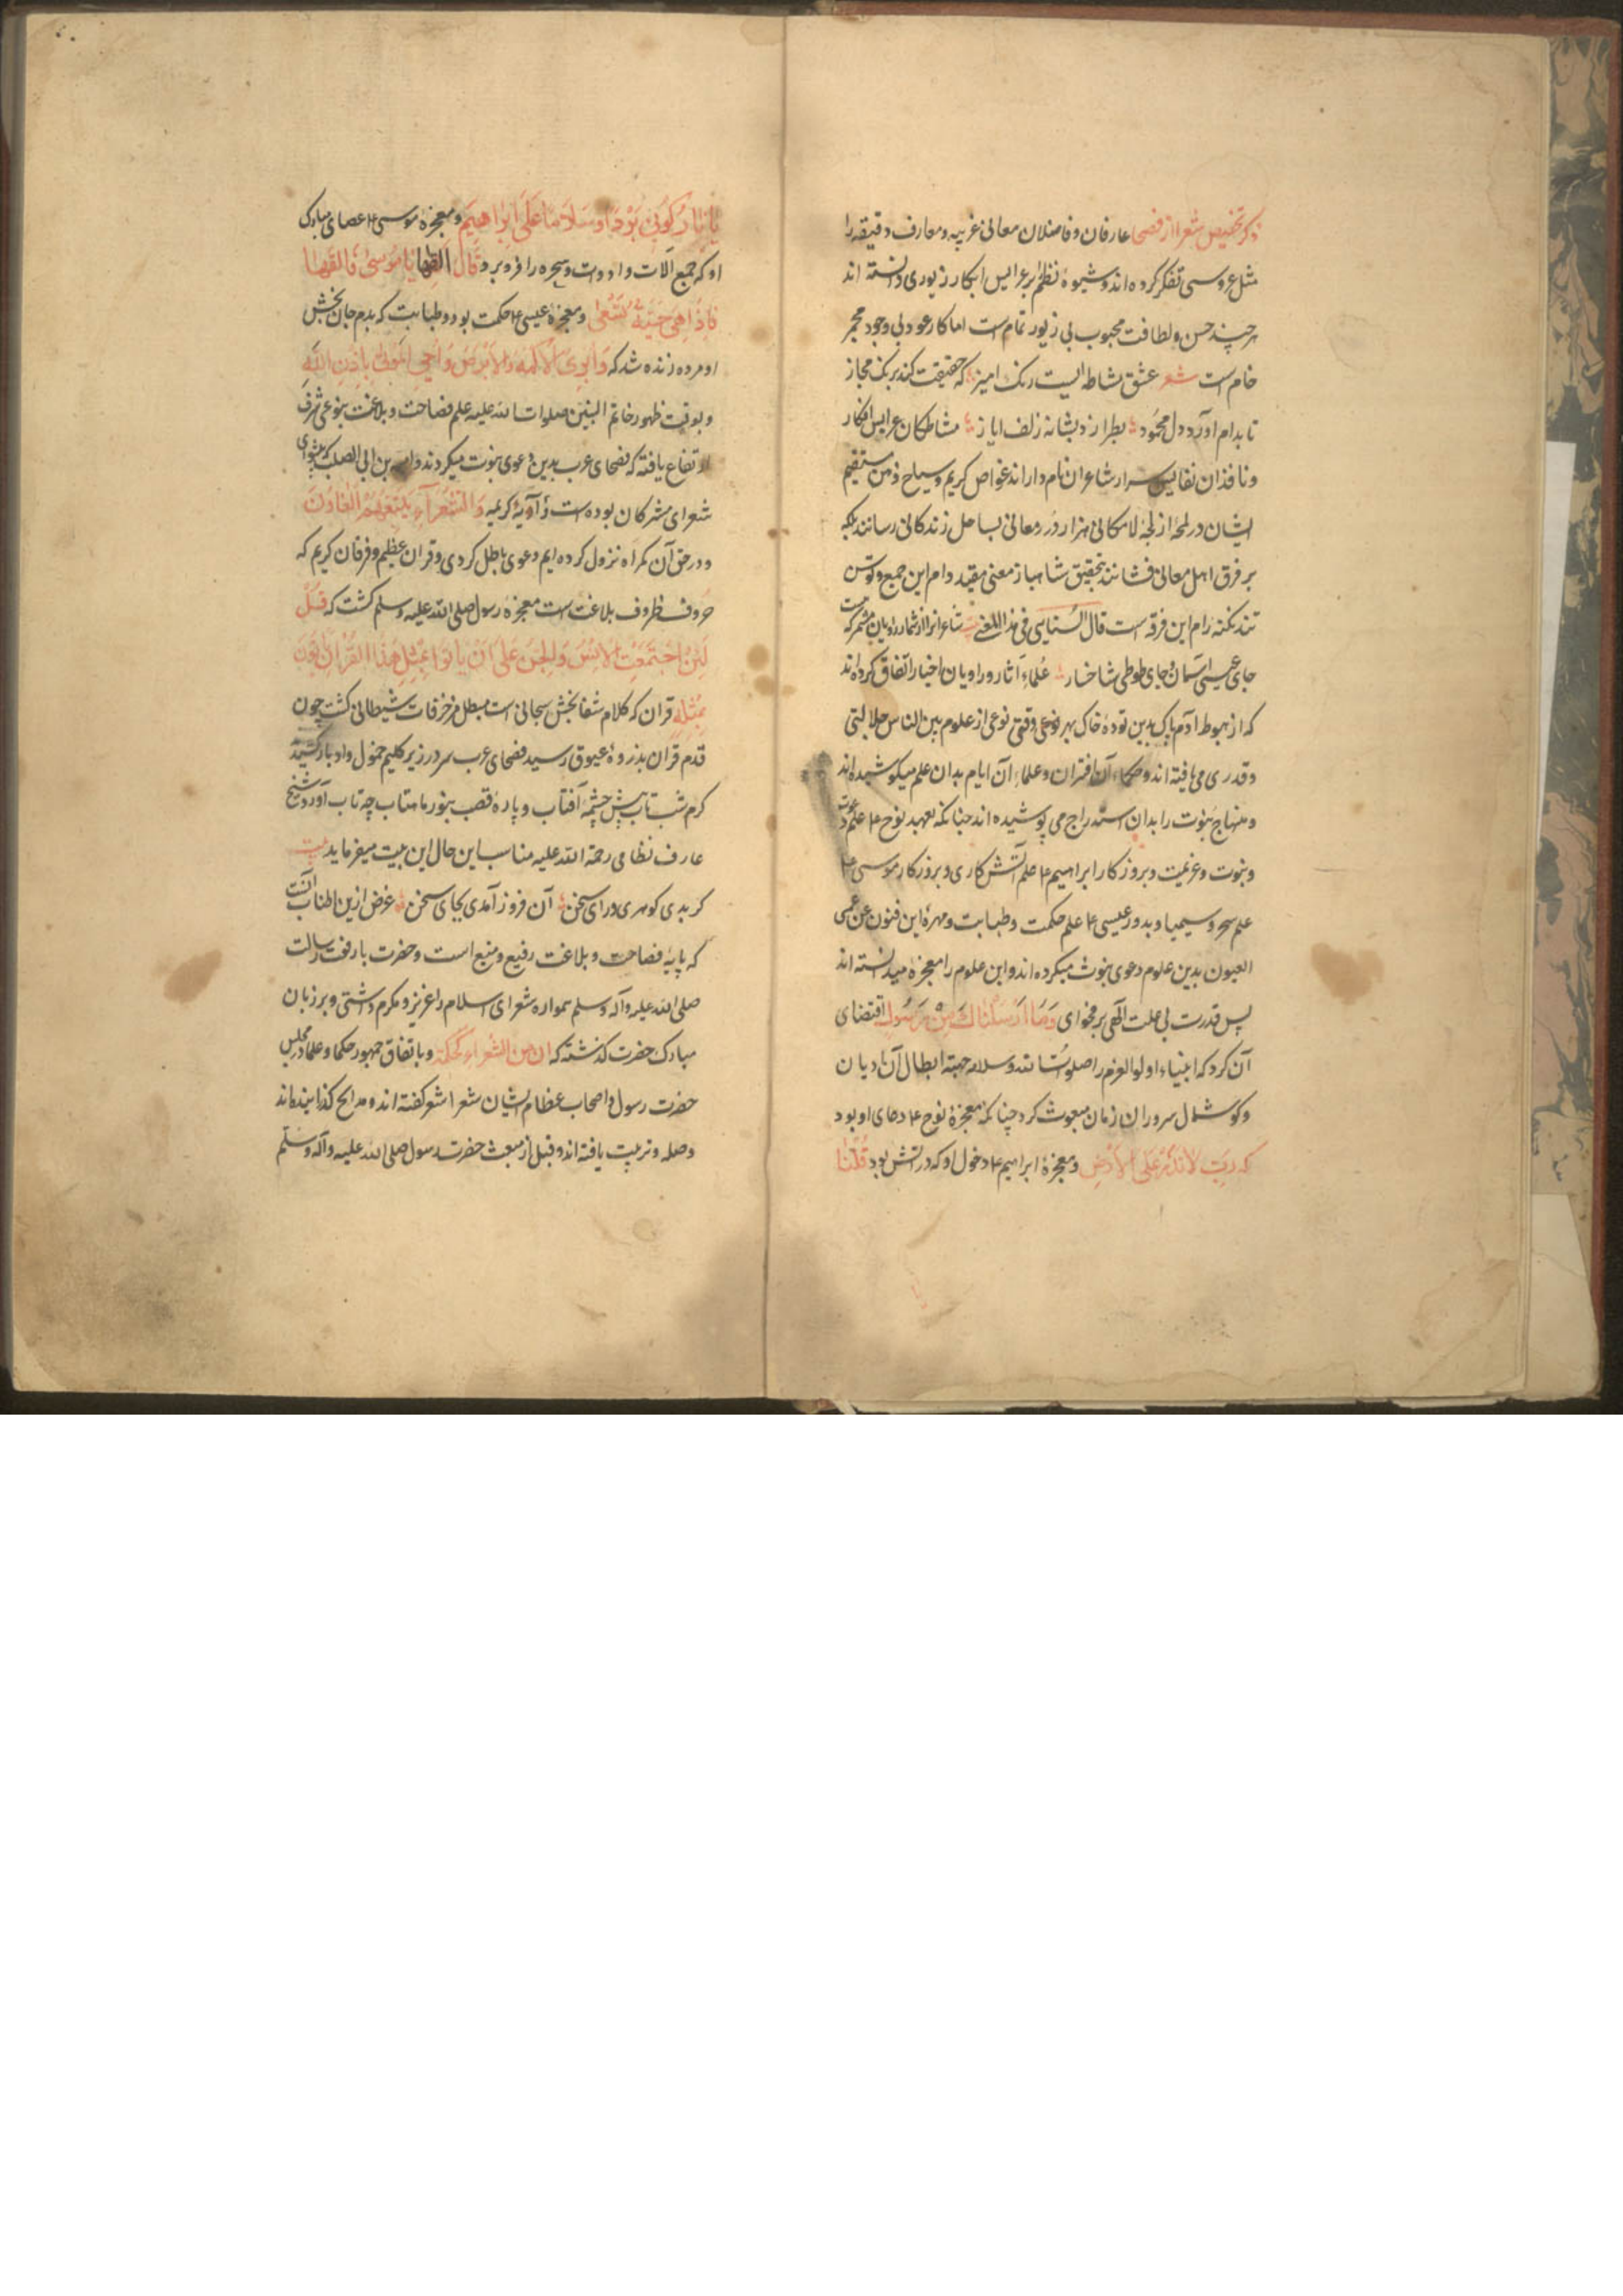 ذکر تخصیص شعرا از فصحا عارفان و فاضلان معانی غریبه و معارف دقیقه را
مثل عروسی تفکر کرده اند و شیوۀ نظم بر عرایس ابکار زیوری دانسته اند
هر چند حسن و لطافت محبوب بی زیور تمام است اما کار عود بی وجود مجمر
خام است شعر عشق مشاطه ایست رنک امیز که حقیقت کند برنک مجاز
تا بدام اورد دل محمود بطرازد بشانه زلف ایاز مشاطکان عرایس افکار
و ناقدان نفایس اسرار شاعران نام دار اند غواص کریم و سیاح ذهن مستقیم
ایشان در لمحۀ از لجۀ لامکانی هزار درّ معانی بساحل زندکانی رسانند بلکه
بر فرق اهل معانی فشانند بتحقیق شاهباز معنی مقید دام این جمع و توسن
تند نکته رام این فرقه است قال السنایی فی هذا المعنی بیت شاعرانرا از شمار راویان مشمر که هست
جای عیسی آسمان و جای طوطی شاخسار علماء آثار و راویان اخبار اتفاق کرده اند
که از هبوط آدم پاک بدین تودۀ خاک بهر نوعی وقتی نوعی از علوم بین الناس جلالتی
و قدری می یافته اند و حکماء آن اقتران و علماء آن ایام بدان علم میکوشیده اند
و منهاج نبوت را بدان استدراج می پوشیده اند چنانکه بعهد نوح ۴ علم دعوت
و نبوت و عزیمت و بروزکار ابراهیم ۴ علم آتش کاری و بروزکار موسی ۴
علم سحر و سیمیا و بدور عیسی ۴ علم حکمت و طبابت و مهرۀ این فنون عن عمی
العیون بدین علوم دعوی نبوت میکرده اند و این علوم را معجزه میدانسته اند
پس قدرت بی علت الهی بر فحوای وَمَا اَرْسَلْنَاكَ مِنْ رَسُولٍ اقتضای
آن کرد که انبیاء اولوالعزم را صلوات الله و سلامه جهة ابطال آن ادیان
و کوشمال سروران زمان مبعوث کرد چنانکه معجزۀ نوح ۴ دعای او بود
که رَبِّ لاَتَذَرْ عَلَى الاَرْضِ و معجزۀ ابراهیم ۴ دخول او که در اتش بود قُلْنَا
یَا نَارُ کُونِی بَرْدًا وَسَلَامًا عَلَى اِبْرَاهِیمَ و معجزۀ موسی ۴ عصای مبارک
او که جمیع آلات و ادوات سحره را فرو برد قَالَ اَلْقِهَا یَا مُوسَى فَالْقَهَا
فَاِذَا هِیَ حَیَّةٌ تَسْعَى و معجزۀ عیسی ۴ حکمت بود و طبابت که بدم جان بخش
او مرده زنده شد که وَاُبْرِئُ الاَکْمَهَ وَالاَبْرَصَ وَاُحْیِی المَوْتَى بِاِذْنِ اللهِ
و بوقت ظهور خاتم النبیین صلوات الله علیه علم فصاحت و بلاغت بنوعی شرف
ارتفاع یافته که فصحای عرب بدین دعوی نبوت میکردند و امیه بن ابی الصلت که پیشوای
شعرای مشرکان بوده است و آیۀ کریمه وَالشُّعَرَآءُ یَتَّبِعُهُمُ الغَاوُنَ
و در حق آن کمراه نزول کرده ایم دعوی باطل کردی و قران عظیم و فرقان کریم که
حروف ظروف بلاغت است معجزۀ رسول صلی الله علیه و سلم کشت که قُلْ
لَئِنِ اجْتَمَعَتِ الاِنْسُ وَالجِنُّ عَلَى اَنْ یَاتُوا بِمِثْلِ هٰذَا القُرْاٰنِ لَایَاتُونَ
بِمِثْلِهِ قران که کلام شفا بخش سبحانی است مبطل مزخرفات شیطانی کشت چون
قدم قران بذروۀ عیوق رسید فصحای عرب سر در زیر کلیم خمول و ادبار کشیدند
کرم شب تاب پیش چشمۀ آفتاب و پارۀ قصب بنور ماهتاب چه تاب آورد شیخ
عارف نظامی رحمة الله علیه مناسب این حال این بیت میفرماید بیت
کر بدی کوهری ورای سخن آن فروز آمدی بجای سخن غرض ازین اطناب آنست
که پایۀ فصاحت و بلاغت رفیع و منیع است و حضرت بارفعت رسالت
صلی الله علیه و آله و سلم همواره شعرای اسلام را عزیز و مکرم داشتی و بر زبان
مبارک حضرت کذشته که ان من الشعراء لحکمة و باتفاق جمهور حکما و علما در مجلس
حضرت رسول و اصحاب عظام ایشان شعرا شعر کفته اند و مدایح کذرانیده اند
و صله و تربیت یافته اند و قبل از مبعث حضرت رسول صلی الله علیه و آله و سلم